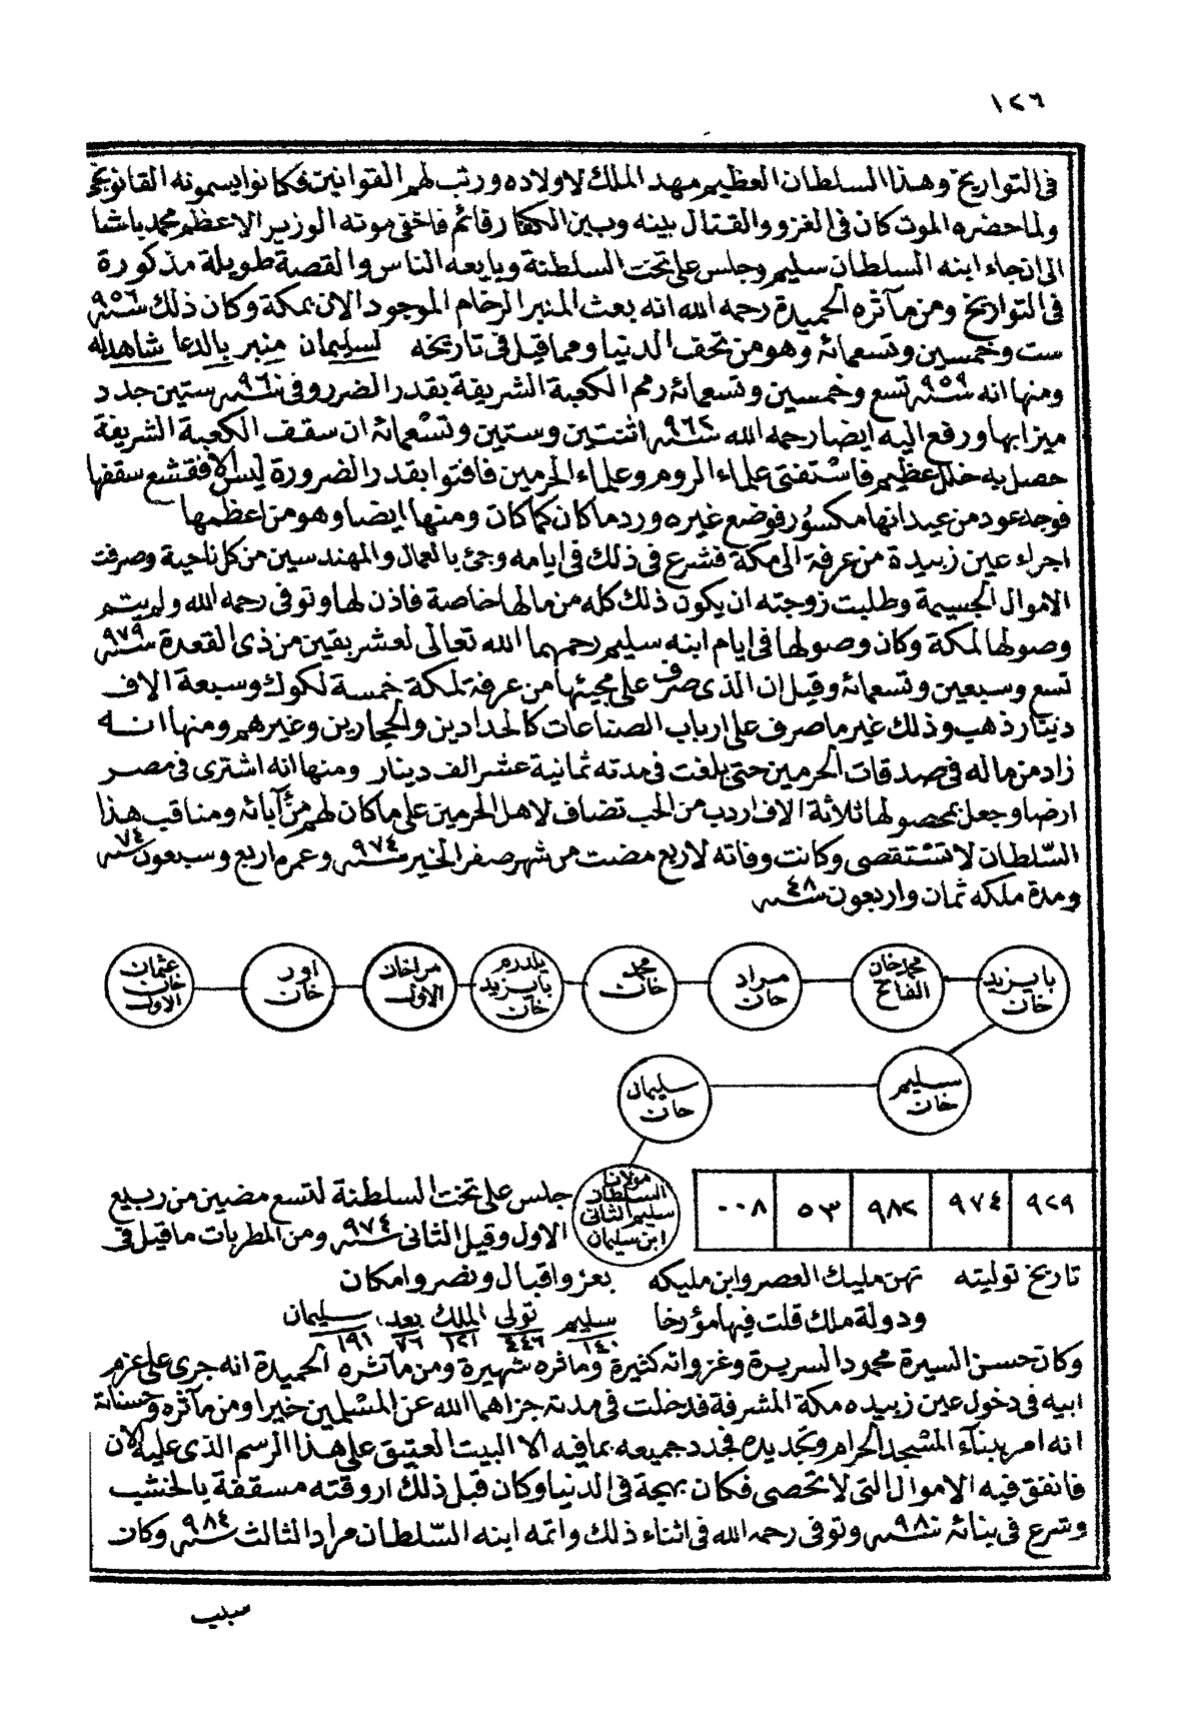 ١٢٦
فى التواريخ وهذا السلطان العظيم مهد الملك لاولاده ورتب لهم القوانين فكانوا يسمونه القانونجى
ولما حضره الموت كان فى الغزو والقتال بينه وبين الكفار قائم فاخفى موته الوزير الاعظم محمد باشا
الى ان جاء ابنه السلطان سليم وجلس على تخت السلطنة وبايعه الناس والقصة طويلة مذكورة
فى التواريخ ومن مآثره الحميدة رحمه الله انه بعث المنبر الرخام الموجود الان بمكة وكان ذلك سنة ٩٥٦
ست وخمسين وتسعمائة وهو من تحف الدنيا ومما قيل فى تاريخه لسليمان منبر بالدعا شاهد له
ومنها انه سنة ٩٥٩ تسع وخمسين وتسعمائة رمم الكعبة الشريفة بقدر الضرر وفى سنة ٩٦٠ ستين جدد
ميزابها ورفع اليه ايضا رحمه الله سنة ٩٦٢ اثنتين وستين وتسعمائة ان سقف الكعبة الشريفة
حصل به خلل عظيم فاستفتى علماء الروم وعلماء الحرمين فافتوا بقدر الضرورة ليس الا فقشع سقفها
فوجد عود من عيدانها مكسور فوضع غيره ورد ما كان كما كان ومنها ايضا وهو من اعظمها
اجراء عين زبيدة من عرفة الى مكة فشرع فى ذلك فى ايامه وجئ بالعمال والمهندسين من كل ناحية وصرفت
الاموال الجسيمة وطلبت زوجته ان يكون ذلك كله من مالها خاصة فاذن لها وتوفى رحمه الله ولم يتم
وصولها لمكة وكان وصولها فى ايام ابنه سليم رحمهما الله تعالى لعشر بقين من ذى القعدة سنة ٩٧٩
تسع وسبعين وتسعمائة وقيل ان الذى صرف على مجيئها من عرفة لمكة خمسة لكوك وسبعة الاف
دينار ذهب وذلك غير ما صرف على ارباب الصناعات كالحدادين والحجارين وغيرهم ومنها انه
زاد من ماله فى صدقات الحرمين حتى بلغت فى مدته ثمانية عشر الف دينار ومنها انه اشترى فى مصر
ارضا وجعل بمحصولها ثلاثة الاف اردب من الحب تضاف لاهل الحرمين على ما كان لهم من آبائه ومناقب هذا
السّلطان لا تستقصى وكانت وفاته لاربع مضت من شهر صفر الخير سنة ٩٧٤ وعمره اربع وسبعون سنة ٧٤
ومدة ملكه ثمان واربعون سنة ٤٨
بايزيد خان
محمد خان الفاتح
مراد خان
محمد خان
يلدرم بايزيد خان
مراد خان الاول
اور خان
عثمان خان الاول
سليم خان
سليمان خان
مولانا السلطان سليم الثانى ابن سليمان
٩٢٩ ٩٧٤ ٩٨٢ ٥٣ ٠٠٨
جلس على تخت السلطنة لتسع مضين من ربيع
الاول وقيل الثانى سنة ٩٧٤ ومن المطربات ما قيل فى
تاريخ توليته تهن مليك العصر وابن مليكه بعز واقبال ونصر وامكان
ودولة ملك قلت فيها مؤرخا سليم تولى الملك بعد سليمان
١٤٠ ٤٤٦ ١٢١ ٧٦ ١٩١
وكان حسن السيرة محمود السريرة وغزواته كثيرة ومآثره شهيرة ومن مآثره الحميدة انه جرى على عزم
ابيه فى دخول عين زبيده مكة المشرفة فدخلت فى مدته جزاهما الله عن المسلمين خيرا ومن مآثره وحسناته
انه امر ببناء المسجد الحرام وتجديده فجدد جميعه بما فيه الا البيت العتيق على هذا الرسم الذى عليه الان
فانفق فيه الاموال التى لا تحصى فكان بهجة فى الدنيا وكان قبل ذلك اروقته مسقفة بالخشب
وشرع فى بنائه سنة ٩٨٠ وتوفى رحمه الله فى اثناء ذلك واتمه ابنه السّلطان مراد الثالث سنة ٩٨٤ وكان
سبب